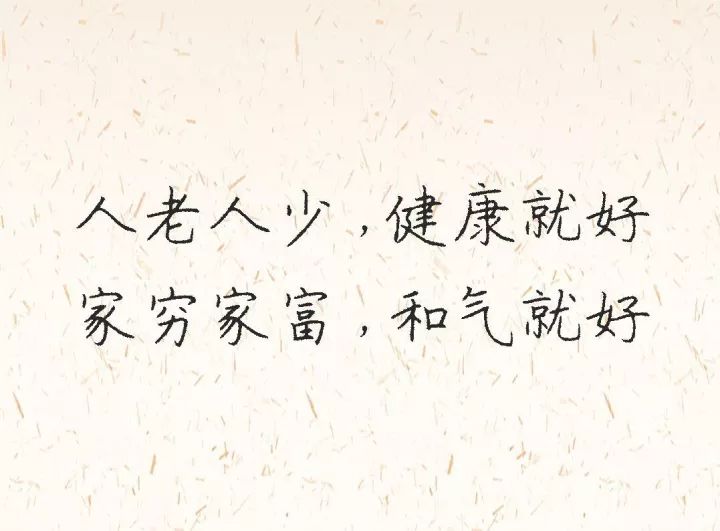 人老人少,健康就好
家穷家富,和气就好